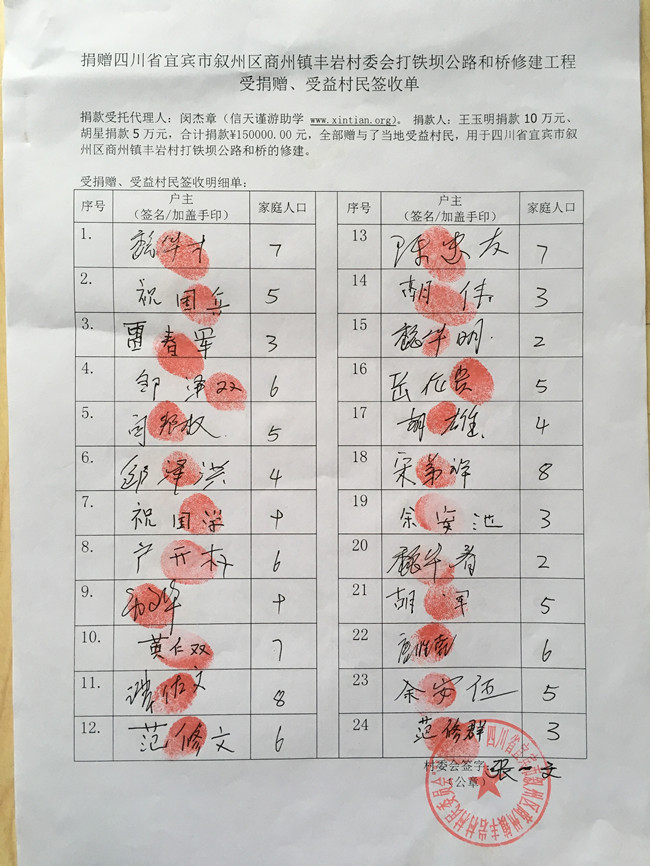 捐赠四川省宜宾市叙州区商州镇丰岩村委会打铁坝公路和桥修建工程
受捐赠、受益村民签收单
捐款受托代理人：闵杰章（信天谨游助学 www.xintian.org)。捐款人：王玉明捐款10万元、
胡星捐款5万元，合计捐款¥150000.00元，全部赠与了当地受益村民，用于四川省宜宾市叙
州区商州镇丰岩村打铁坝公路和桥的修建。
受捐赠、受益村民签收明细单：
序号 户主（签名/加盖手印） 家庭人口 序号 户主（签名/加盖手印） 家庭人口
1. 7 13 陈忠友 7
2. 祝国兵 5 14 胡伟 3
3. 雷春军 3 15 华明 2
4. 邹泽双 6 16 岳 贵 5
5. 5 17 胡雄 4
6. 邹泽洪 4 18 宋弟祥 8
7. 祝国学 19 余安池 3
8. 6 20 2
9. 21 胡军 5
10. 黄仁双 7 22 6
11. 文 8 23 余安伍 5
12. 范修文 6 24 范修群 3
村委会签字：张一文
（公章）